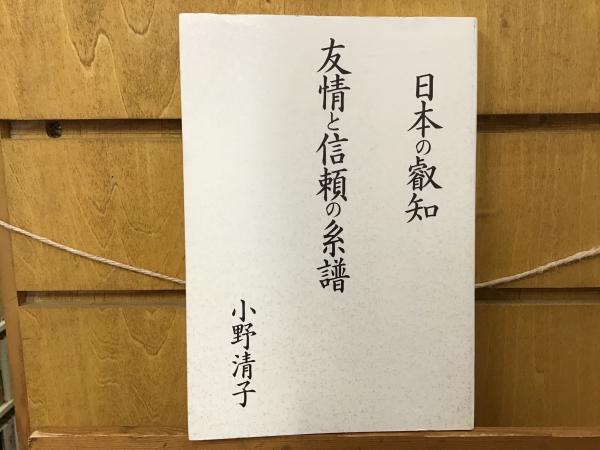 日本の叡知
友情と信頼の系譜
小野清子